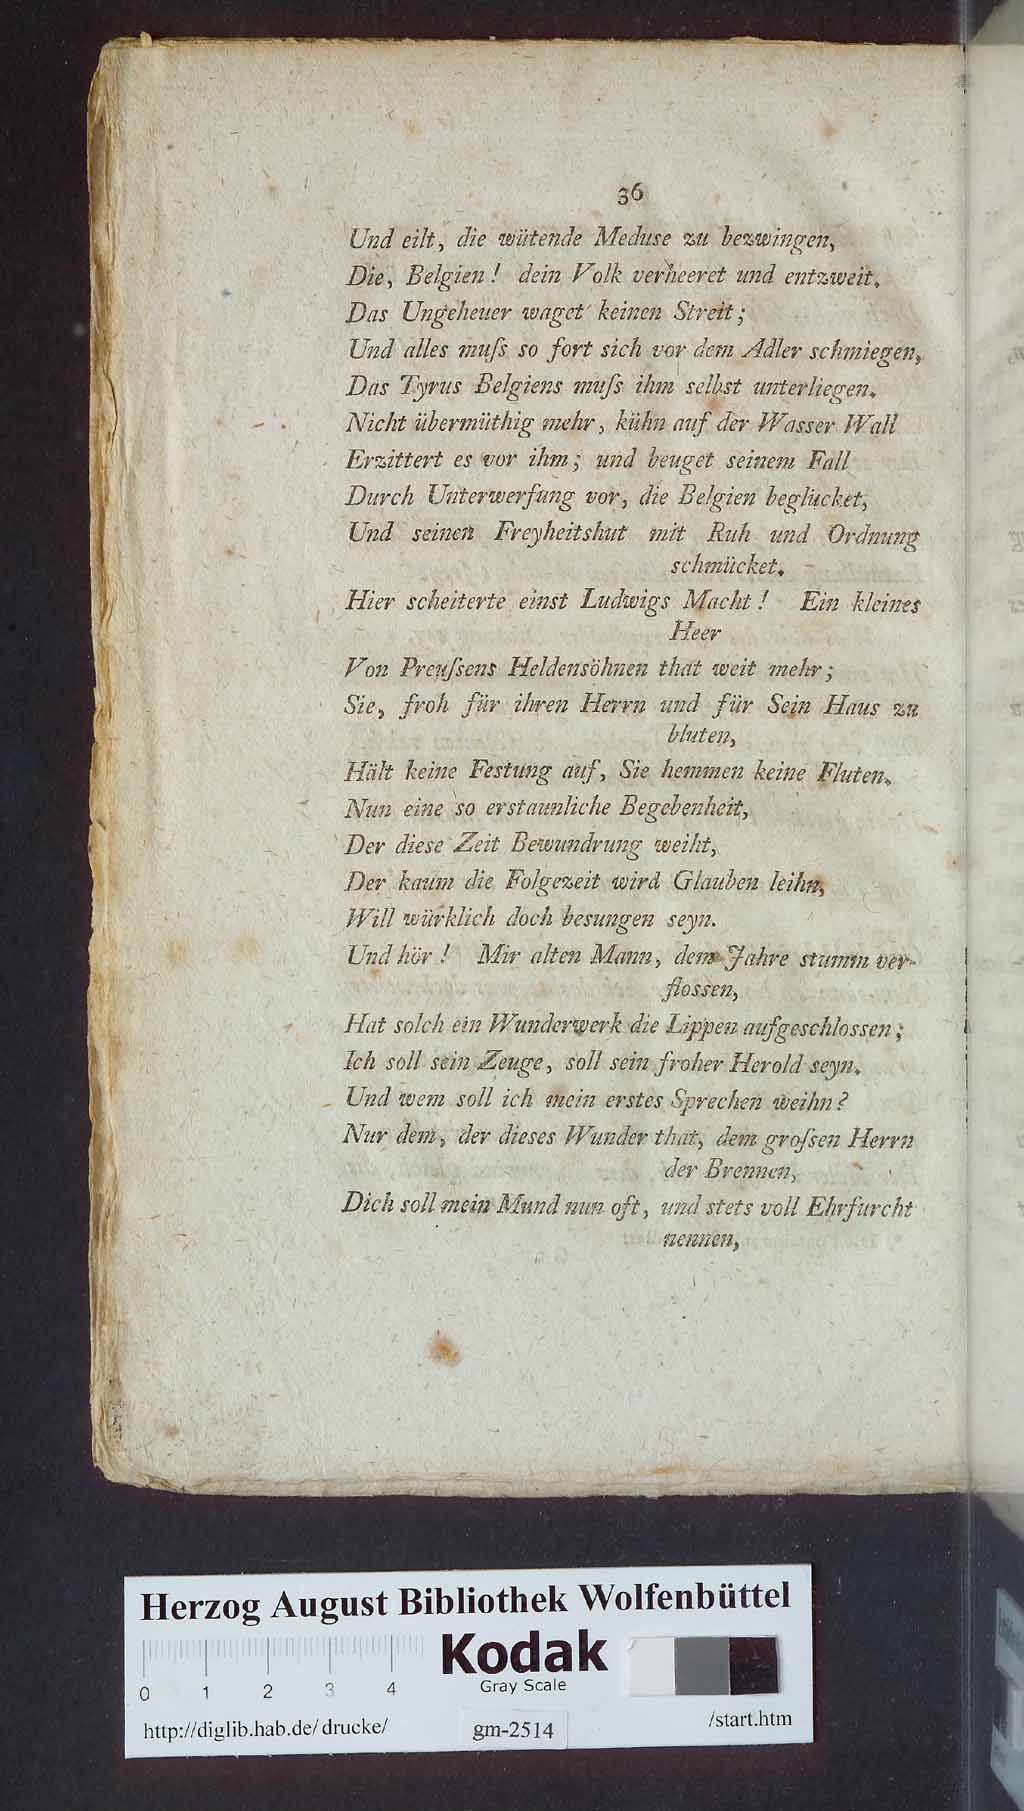 36
Und eilt, die wütende Meduse zu bezwingen,
Die, Belgien! dein Volk verheeret und entzweit.
Das Ungeheuer waget keinen Streit;
Und alles muſs so fort sich vor dem Adler schmiegen,
Das Tyrus Belgiens muſs ihm selbst unterliegen.
Nicht übermüthig mehr, kühn auf der Wasser Wall
Erzittert es vor ihm; und beuget seinem Fall
Durch Unterwerfung vor, die Belgien beglücket,
Und seinen Freyheitshut mit Ruh und Ordnung
schmücket.
Hier scheiterte einst Ludwigs Macht! Ein kleines
Heer
Von Preuſsens Heldensöhnen that weit mehr;
Sie, froh für ihren Herrn und für Sein Haus zu
bluten,
Hält keine Festung auf, Sie hemmen keine Fluten.
Nun eine so erstaunliche Begebenheit,
Der diese Zeit Bewundrung weiht,
Der kaum die Folgezeit wird Glauben leihn,
Will würklich doch besungen seyn.
Und hör! Mir alten Mann, dem Jahre stumm ver-
flossen,
Hat solch ein Wunderwerk die Lippen aufgeschlossen;
Ich soll sein Zeuge, soll sein froher Herold seyn.
Und wem soll ich mein erstes Sprechen weihn?
Nur dem, der dieses Wunder that, dem groſsen Herrn
der Brennen,
Dich soll mein Mund nun oft, und stets voll Ehrfurcht
nennen,
Herzog August Bibliothek Wolfenbüttel
Kodak
Gray Scale
0 1 2 3 4
http://diglib.hab.de/drucke/ gm-2514 /start.htm